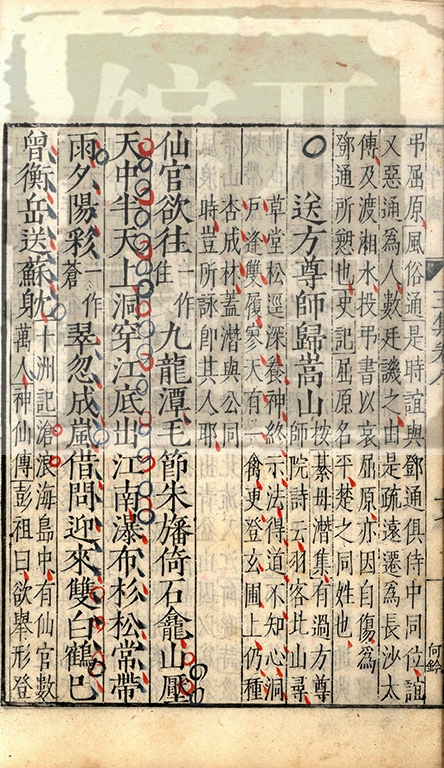 弔屈原風俗通是時誼與鄧通俱侍中同位誼
又惡通爲人數廷譏之由是疏遠遷爲長沙太
傅及渡湘水投弔書以哀屈原亦因自傷爲
鄧通所愬也史記屈原名平楚之同姓也
何鈴
○送方尊師歸嵩山按綦毋潛集有過方尊
師院詩云羽客北山尋
草堂松逕深養神終示法得道不知心洞
戶逢雙履寥天有一禽更登玄圃上仍種
杏成林蓋潛與公同
時豈所詠即其人耶
仙官欲往一作住九龍潭毛節朱旛倚石龕山壓
天中半天上洞穿江底出江南瀑布杉松常帶
雨夕陽彩一作蒼翠忽成嵐借問迎來雙白鶴已
曾衡岳送蘇躭十洲記滄浪海島中有仙官數
萬人神仙傳彭祖曰欲舉形登